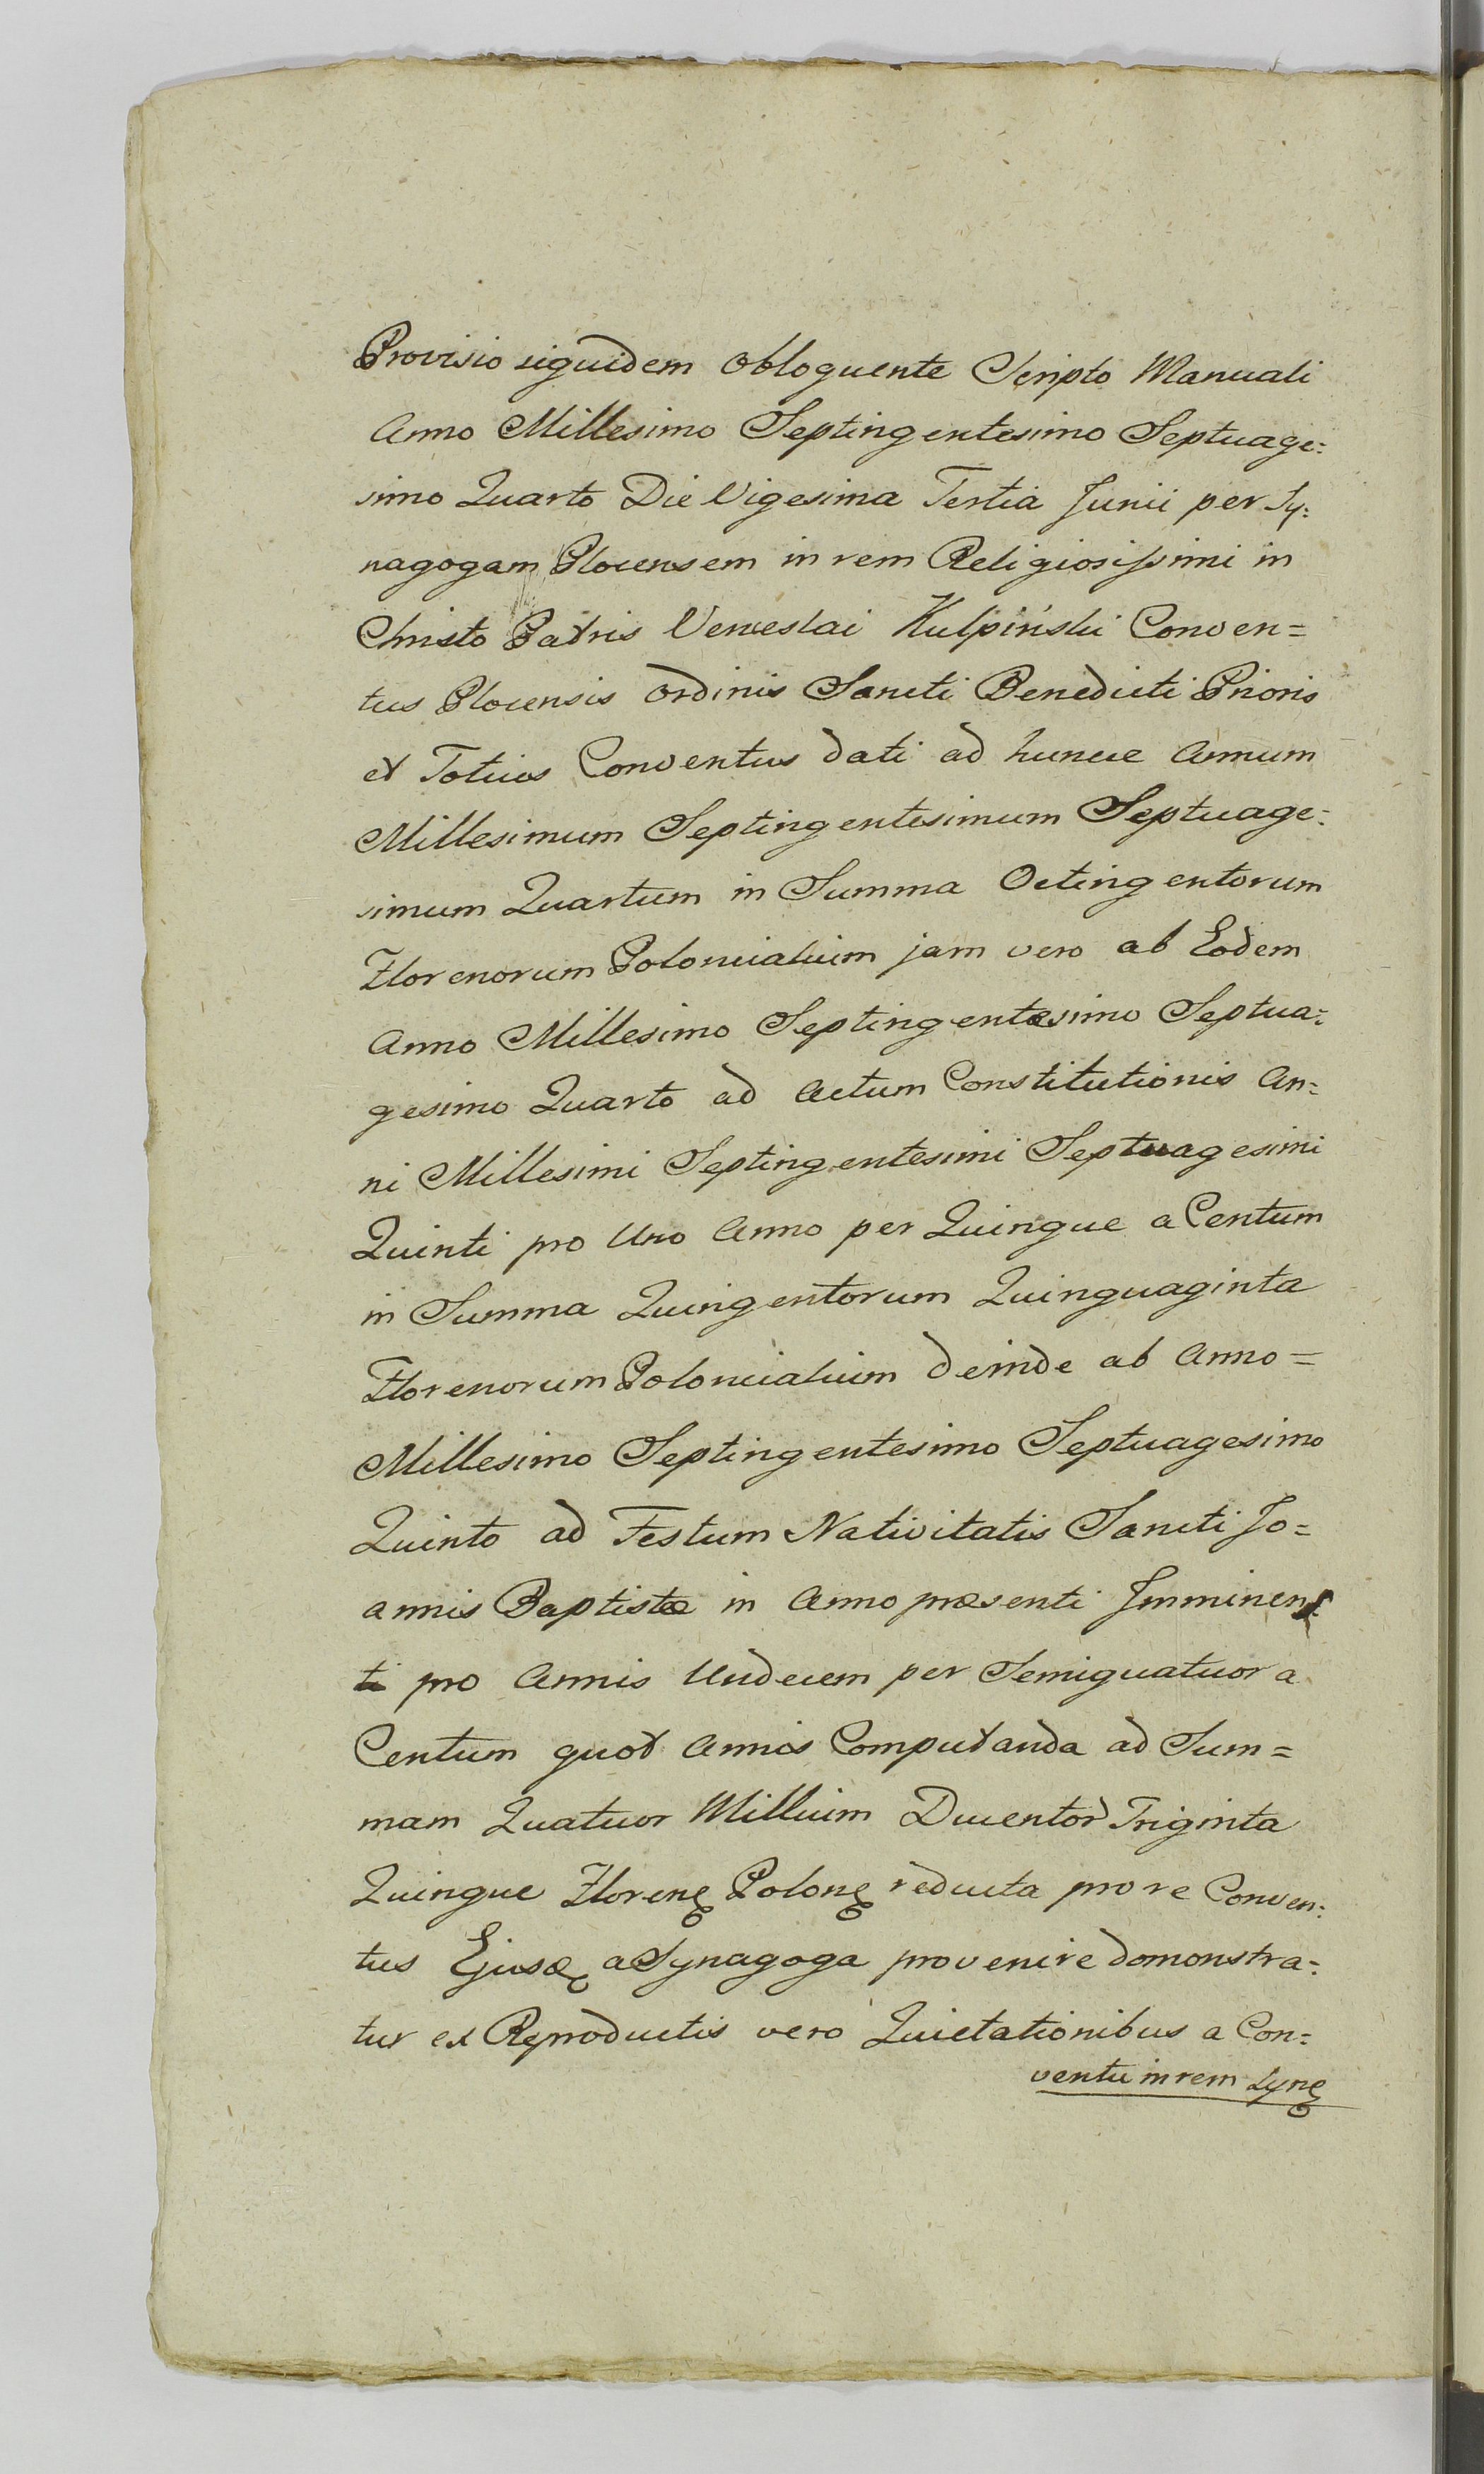 Provisio siquidem Obloquente Scripto Manuali
Anno Millesimo Septingentesimo Septuage:
simo Quarto Die Vigesima Tertia Junii per Sy:
nagogam Plocensem in rem Religiosissimi in
Christo Patris Venceslai Kulpiński Conven=
tus Plocensis Ordinis Sancti Benedicti Prioris
et Totius Conventus dati ad huncce Annum
Millesimum Septingentesimum Septuage:
simum Quartum in Summa Octingentorum
Florenorum Polonicalium jam vero ab Eodem
Anno Millesimo Septingentesimo Septua:
gesimo Quarto ad Actum Constitutionis An:
ni Millesimi Septingentesimi Septuagesimi
Quinti pro Uno Anno per Quinque a Centum
in Summa Quingentorum Quinquaginta
Florenorum Polonicalium deinde ab Anno=
Millesimo Septingentesimo Septuagesimo
Quinto ad Festum Nativitatis Sancti Jo=
annis Baptistæ in Anno præsenti Imminen:
ti pro Annis Undecem per Semiquatuor a
Centum quot Annis Computanda ad Sum=
mam Quatuor Millium Ducentor Triginta
Quinque Florenę Polonę reducta pro re Conven:
tus Ejusdę a Synagoga provenire domonstra:
tur ex Reproductis vero Quietationibus a Con:
ventu in rem Synę